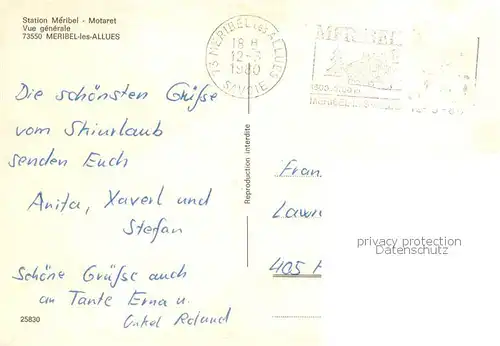 Station Méribel - Motaret
Vue générale
73550 MERIBEL-les-ALLUES
73 MERIBEL les ALLUES
18 H
12-3
1980
SAVOIE
MERIBEL
Die schönsten Grüße
vom Skiurlaub
senden Euch
Anita, Xaverl und
Stefan
Schöne Grüße auch
an Tante Erna u.
Onkel Roland
25830
Reproduction interdite
Fran
Lawn
405
privacy protection
Datenschutz